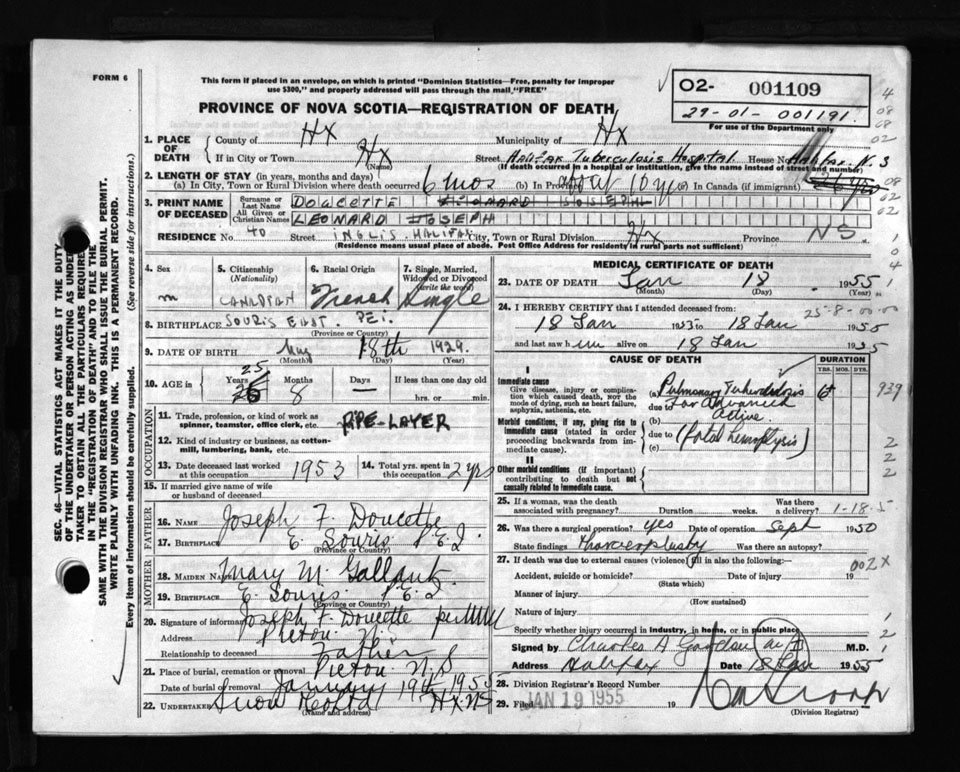 FORM 6
This form if placed in an envelope, on which is printed "Dominion Statistics—Free, penalty for improper
use $300," and properly addressed will pass through the mail "FREE"
PROVINCE OF NOVA SCOTIA—REGISTRATION OF DEATH
O2- 001109
29-01-001191
For use of the Department only
1. PLACE OF DEATH
County of Hx Municipality of Hx
If in City or Town Hx (Name) Street Halifax Tuberculosis Hospital House No. Halifax N.S
(If death occurred in a hospital or institution, give the name instead of street and number)
2. LENGTH OF STAY (in years, months and days)
(a) In City, Town or Rural Division where death occurred 6 mos (b) In Province (c) In Canada (if immigrant)
3. PRINT NAME OF DECEASED
Surname or Last Name DOUCETTE LEONARD JOSEPH
All Given or Christian Names LEONARD JOSEPH
RESIDENCE No. 40 Street INGLIS. HALIFAX City, Town or Rural Division Hx Province NS.
(Residence means usual place of abode. Post Office Address for residence in rural parts not sufficient)
4. Sex m
5. Citizenship (Nationality) CANADIAN
6. Racial Origin French
7. Single, Married, Widowed or Divorced (write the word) Single
8. BIRTHPLACE SOURIS EAST. PEI.
(Province or Country)
9. DATE OF BIRTH May 18th 1929.
(Month) (Day) (Year)
10. AGE in Years 25 26 Months 8 Days — If less than one day old
hrs. or min.
OCCUPATION
11. Trade, profession, or kind of work as
spinner, teamster, office clerk, etc. PIPE-LAYER
12. Kind of industry or business, as cotton-
mill, lumbering, bank, etc.
13. Date deceased last worked
at this occupation 1953
14. Total yrs. spent in
this occupation 2 yrs
15. If married give name of wife
or husband of deceased
FATHER
16. NAME Joseph F. Doucette
17. BIRTHPLACE E. Souris P.E.I
(Province or Country)
MOTHER
18. MAIDEN NAME Mary M. Gallant.
19. BIRTHPLACE E. Souris P.E.I
(Province or Country)
20. Signature of informant Joseph F. Doucette per
Address Pictou N.S.
Relationship to deceased Father
21. Place of burial, cremation or removal Pictou N.S
Date of burial January 19th 1955
22. UNDERTAKER Snow Hx. N.S
(Name and address)
MEDICAL CERTIFICATE OF DEATH
23. DATE OF DEATH Jan 18 1955
(Month) (Day) (Year)
24. I HEREBY CERTIFY that I attended deceased from:
25-8-00-00
18 Jan 1953 to 18 Jan 1955
and last saw him alive on 18 Jan 1955
CAUSE OF DEATH
DURATION
YRS. MOS. DYS.
I
Immediate cause
Give disease, injury or complication which caused death, not the mode of dying, such as heart failure, asphyxia, asthenia, etc.
(a) Pulmonary Tuberculosis 6
due to Far Advanced
(b) Active
Morbid conditions, if any, giving rise to immediate cause (stated in order proceeding backwards from immediate cause).
due to (fatal hemoptysis)
(c)
II
Other morbid conditions (if important) contributing to death but not causally related to immediate cause.
25. If a woman, was the death
associated with pregnancy? Duration weeks. Was there a delivery? 1-18-5
26. Was there surgical operation? yes Date of operation Sept 1950
State findings thoracoplasty Was there an autopsy?
27. If death was due to external causes (violence) fill in also the following:—
002X
Accident, suicide or homicide? Date of injury 19
(State which)
Manner of injury
(How sustained)
Nature of injury
Specify whether injury occurred in industry, in home, or in public place
Signed by Charles A M.D.
Address Halifax Date 18 Jan 1955
28. Division Registrar's Record Number
29. Filed JAN 19 1955 19
(Division Registrar)
SEC. 46—VITAL STATISTICS ACT MAKES IT THE DUTY
OF THE UNDERTAKER OR PERSON ACTING AS UNDERTAKER TO OBTAIN ALL THE PARTICULARS REQUIRED
IN THE "REGISTRATION OF DEATH" AND TO FILE THE
SAME WITH THE DIVISION REGISTRAR WHO SHALL ISSUE THE BURIAL PERMIT.
WRITE PLAINLY WITH UNFADING INK. THIS IS A PERMANENT RECORD.
Every item of information should be carefully supplied. (See reverse side for instructions.)